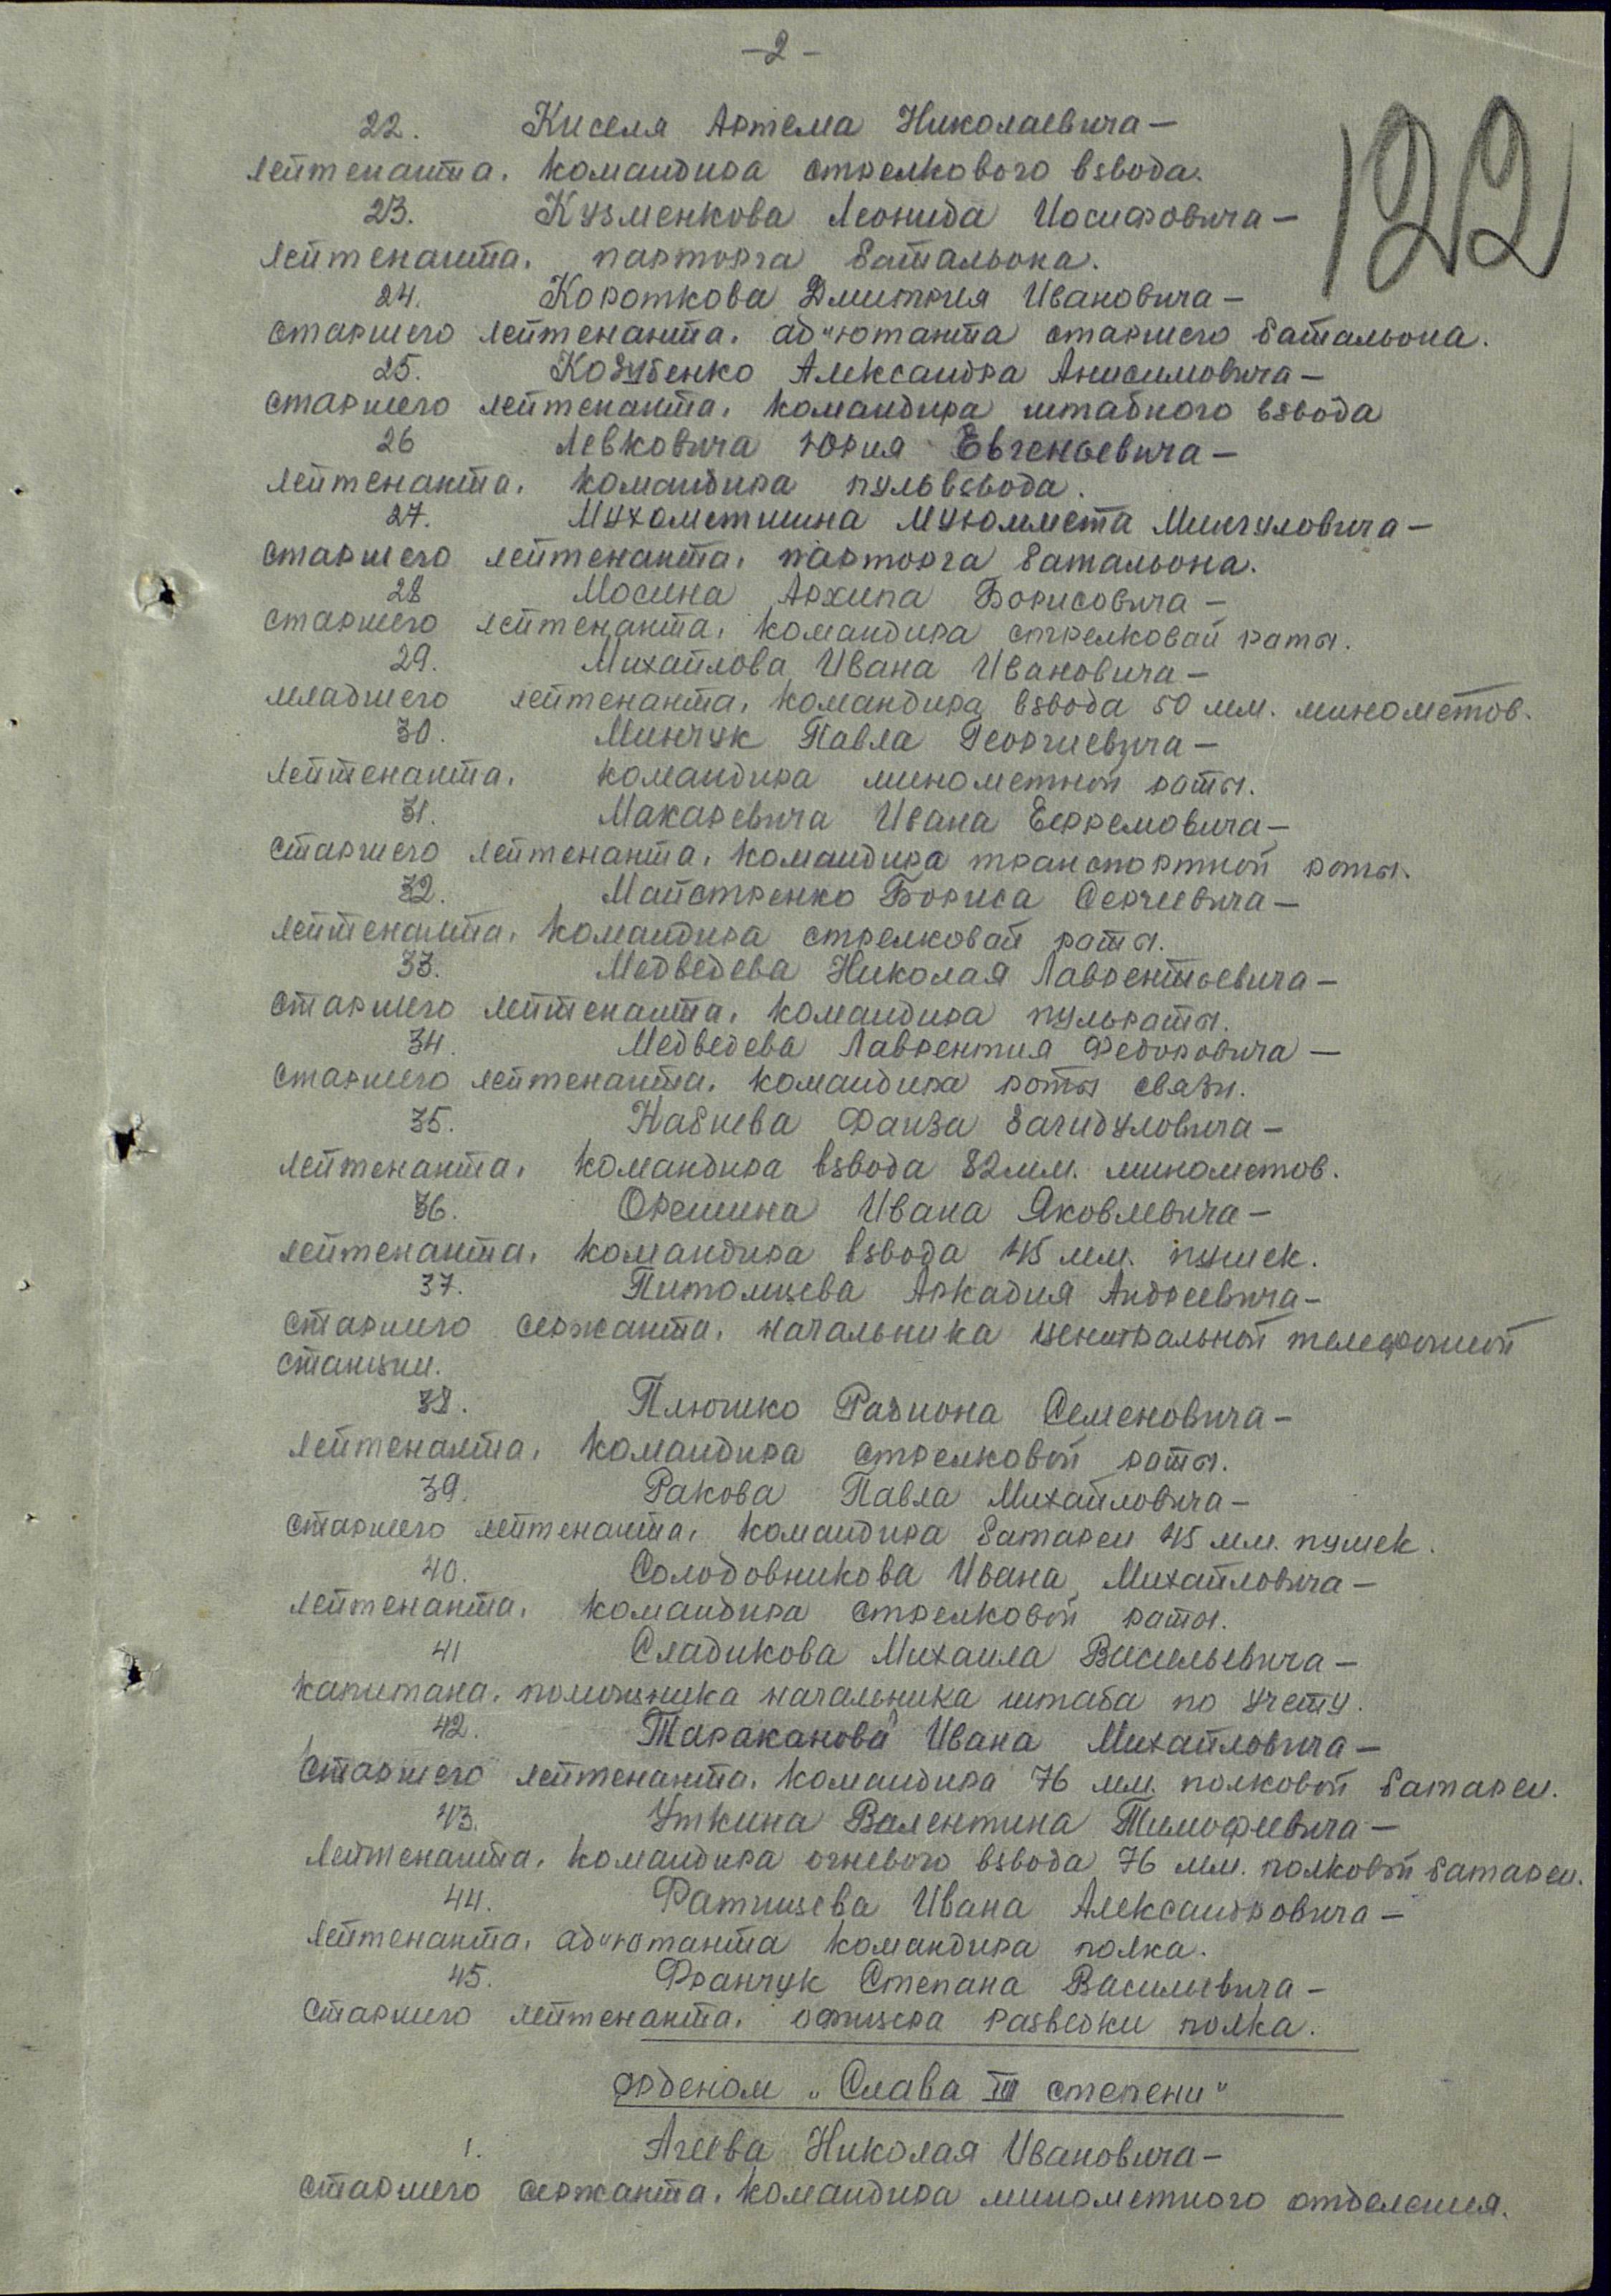 -2-
122
22. Киселя Артема Николаевича-
лейтенанта. командира стрелкового взвода.
23. Кузменкова Леонида Иосифовича-
лейтенанта. парторга батальона.
24. Короткова Дмитрия Ивановича-
старшего лейтенанта. ад"ютанта старшего батальона.
25. Кодубенко Александра Анисимовича-
старшего лейтенанта. командира штабного взвода
26 Левковича Юрия Евгеньевича-
лейтенанта. командира пульвзвода.
27. Мухометшина Мухоммета Мингуловича-
старшего лейтенанта. парторга батальона.
28 Мосина Архипа Борисовича-
старшего лейтенанта. командира стрелковай раты.
29. Михайлова Ивана Ивановича-
младшего лейтенанта. командира взвода 50 мм. минометов.
30. Минчук Павла Георгиевича-
лейтенанта. командира минометной раты.
31. Макаревича Ивана Ефремовича-
старшего лейтенанта. командира транспортной роты.
32. Майстренко Бориса Сергеевича-
лейтенанта. командира стрелковай раты.
33. Медведева Николая Лаврентьевича-
старшего лейтенанта. командира пульраты.
34. Медведева Лаврентия Федоровича-
старшего лейтенанта. командира роты связи.
35. Набиева Фаиза Багидуловича-
лейтенанта. командира взвода 82мм. минометов.
36. Орешина Ивана Яковлевича-
лейтенанта. командира взвода 45 мм. пушек.
37. Питомцева Аркадия Андреевича-
старшего сержанта. начальника центральной телефонной
станции.
38. Плюшко Радиона Семеновича-
лейтенанта. командира стрелковой раты.
39. Ракова Павла Михайловича-
старшего лейтенанта. командира батареи 45 мм. пушек.
40. Солодовникова Ивана Михайловича-
лейтенанта. командира стрелковой раты.
41 Сладикова Михаила Васильевича-
капитана. помощника начальника штаба по учету.
42. Тараканова Ивана Михайловича-
старшего лейтенанта. командира 76 мм. полковой батареи.
43. Уткина Валентина Тимофеевича-
лейтенанта. командира огневого взвода 76 мм. полковой батареи.
44. Фатищева Ивана Александровича-
лейтенанта. ад"ютанта командира полка.
45. Франчук Степана Васильевича-
старшего лейтенанта. офицера разведки полка.
орденом „Слава III степени"
1. Агеева Николая Ивановича-
старшего сержанта. командира минометного отделения.